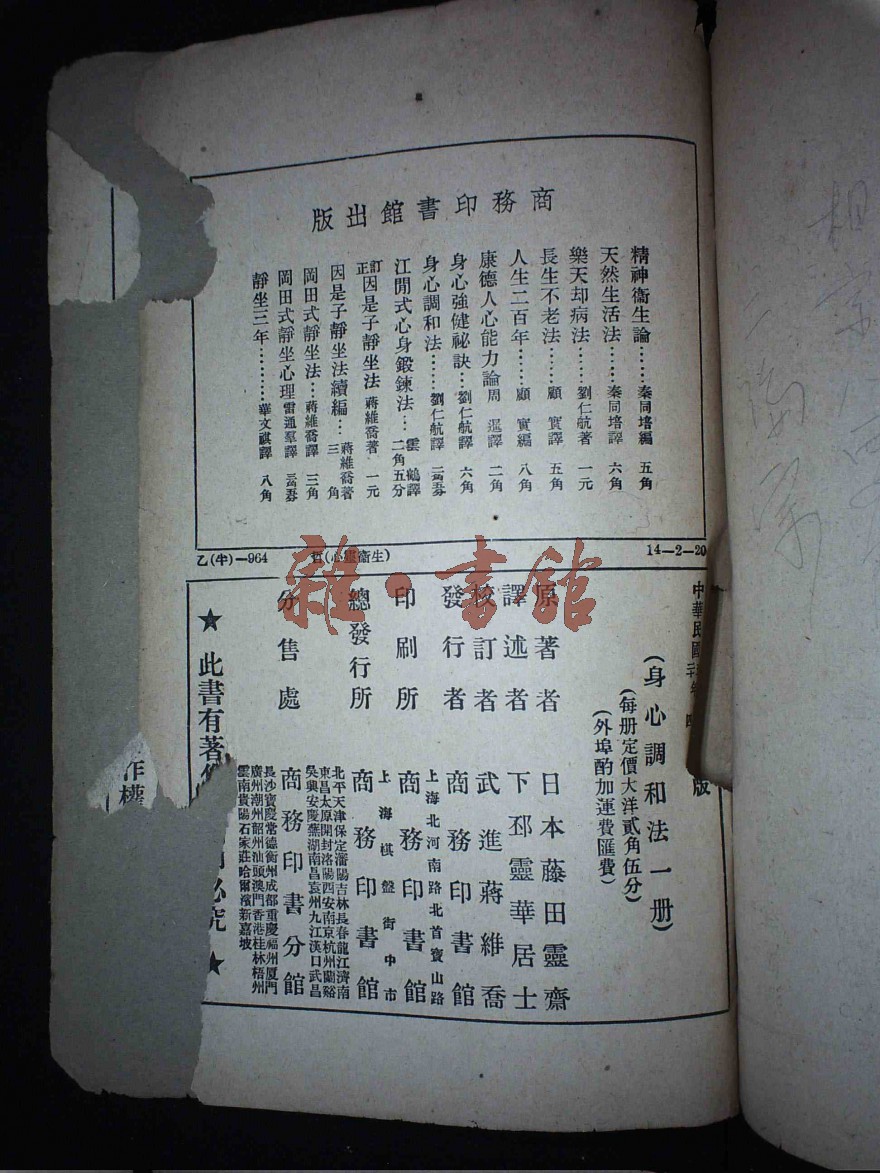 商務印書館出版
精神衞生論………秦同培編 五角
天然生活法……秦同培譯 六角
樂天却病法……劉仁航著 一元
長生不老法……顧 實譯 五角
人生二百年……顧 實編 八角
康德人心能力論 周 暹譯 二角
身心強健祕訣…劉仁航譯 六角
身心調和法……劉仁航譯
江間式心身鍛鍊法…雲鶴譯 二角五分
訂正因是子靜坐法 蔣維喬著 一元
因是子靜坐法續編…蔣維喬著 三角
岡田式靜坐法…蔣維喬譯 三角
岡田式靜坐心理 雷通羣譯
靜坐三年…………華文祺譯 八角
14-2-20
哲(心靈衞生)
乙(牛)-964
雜·書館
中華民國
版
(身心調和法一册)
(每册定價大洋貳角伍分)
(外埠酌加運費匯費)
原著者 日本藤田靈齋
譯述者 下邳靈華居士
校訂者 武進蔣維喬
發行者 商務印書館
上海北河南路北首寶山路
印刷所 商務印書館
上海棋盤街中市
總發行所 商務印書館
北平天津保定瀋陽吉林長春龍江濟南
東昌太原開封洛陽西安南京杭州蘭谿
吳興安慶蕪湖南昌袁州九江漢口武昌
分售處 商務印書分館
長沙寶慶常德衡州成都重慶福州厦門
廣州潮州韶州汕頭澳門香港桂林梧州
雲南貴陽石家莊哈爾濱新嘉坡
★此書有著作
必究★
作權